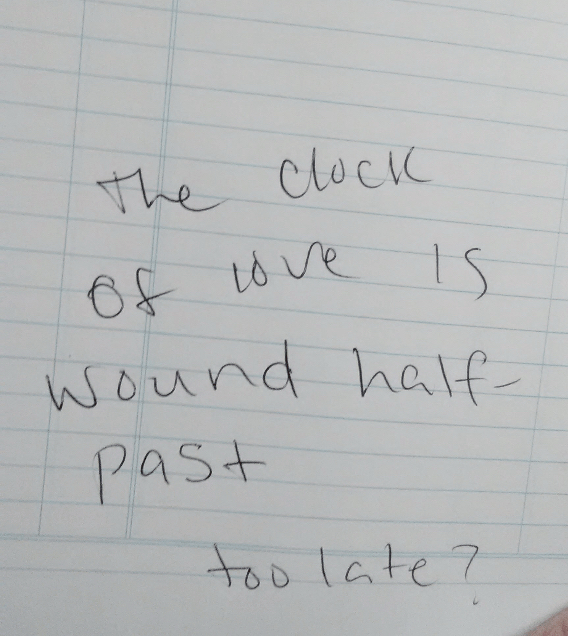 The clock
of love is
wound half-
past
too late?